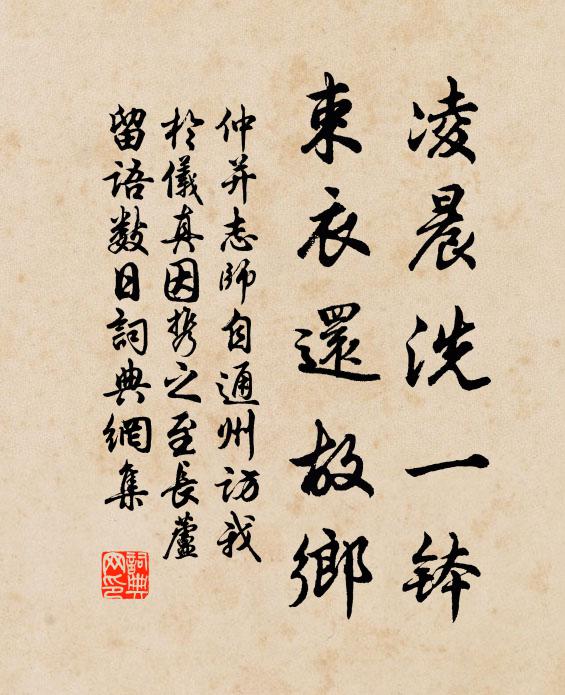 凌晨洗一鉢
束衣還故鄉
仲并志師自通州訪我
於儀真因携之至長蘆
留語數日詞典網集
詞典网印